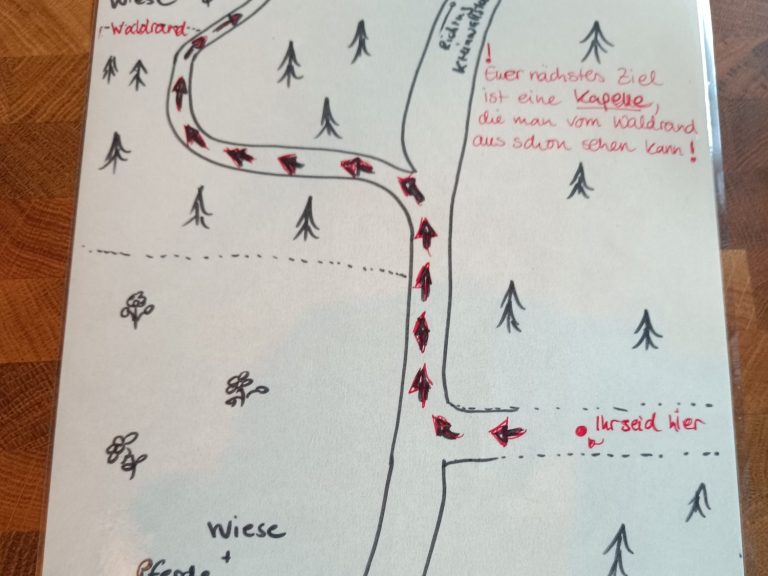 Wiese +
Waldrand
Richtung
!
Euer nächstes Ziel
ist eine Kapelle,
die man vom Waldrand
aus schon sehen kann!
Ihr seid hier
Wiese
+
Pferde